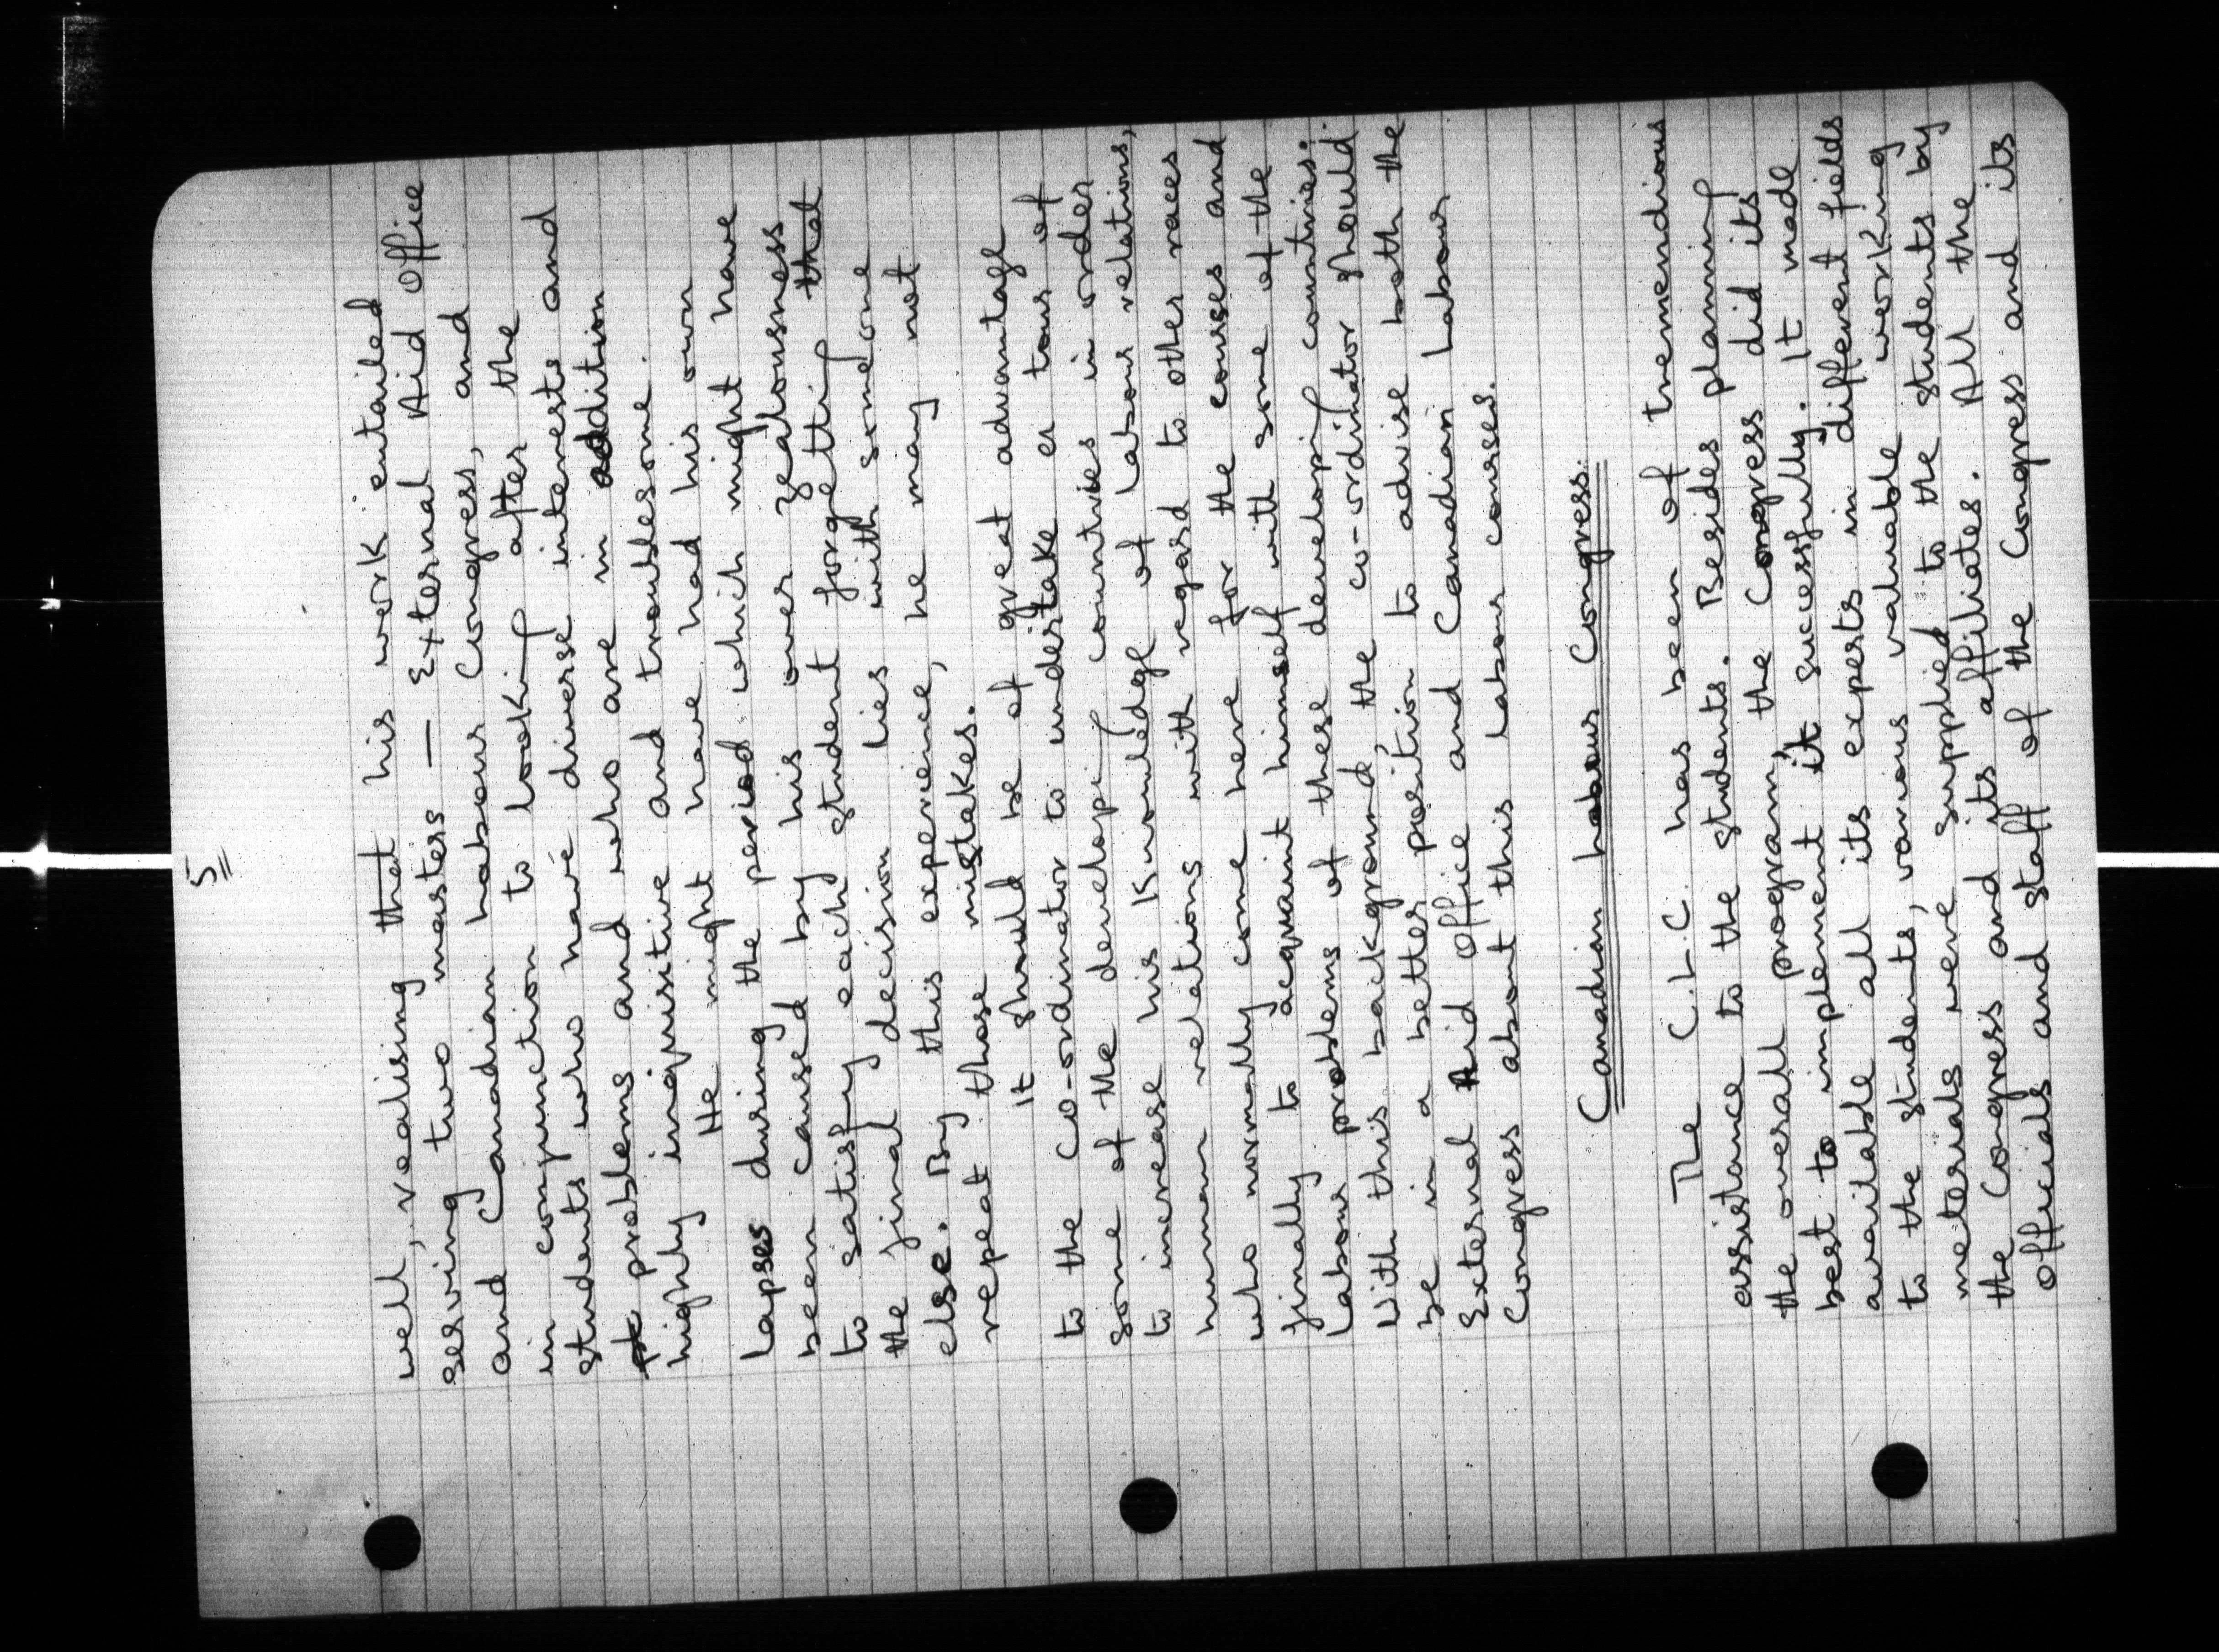 5
well, realising that his work entailed
serving two masters — External Aid Office
and Canadian Labour Congress, and
in conjunction to looking after the
students who have diverse interests and
problems and who are in addition
highly inquisitive and troublesome.
He might have had his own
lapses during the period which might have
been caused by his over zealousness
to satisfy each student forgetting that
the final decision lies with someone
else. By this experience, he may not
repeat those mistakes.
It should be of great advantage
to the co-ordinator to undertake a tour of
some of the developing countries in order
to increase his knowledge of labour relations,
human relations with regard to other races
who normally come here for the courses and
finally to acquaint himself with some of the
labour problems of these developing countries.
With this background, the co-ordinator should
be in a better position to advise both the
External Aid Office and Canadian Labour
Congress about this labour courses.
Canadian Labour Congress.
The C.L.C. has been of tremendious
assistance to the students. Besides planning
the overall program, the Congress did its
best to implement it successfully. It made
available all its experts in different fields
to the students, various valuable working
meterials were supplied to the students by
the Congress and its affiliates. All the
officials and staff of the Congress and its